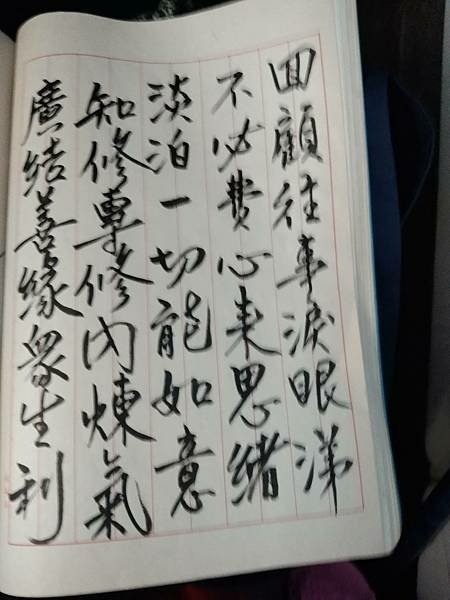 回顧往事淚眼涕
不必費心來思緒
淡泊一切能如意
知修專修內煉氣
廣結善緣眾生利